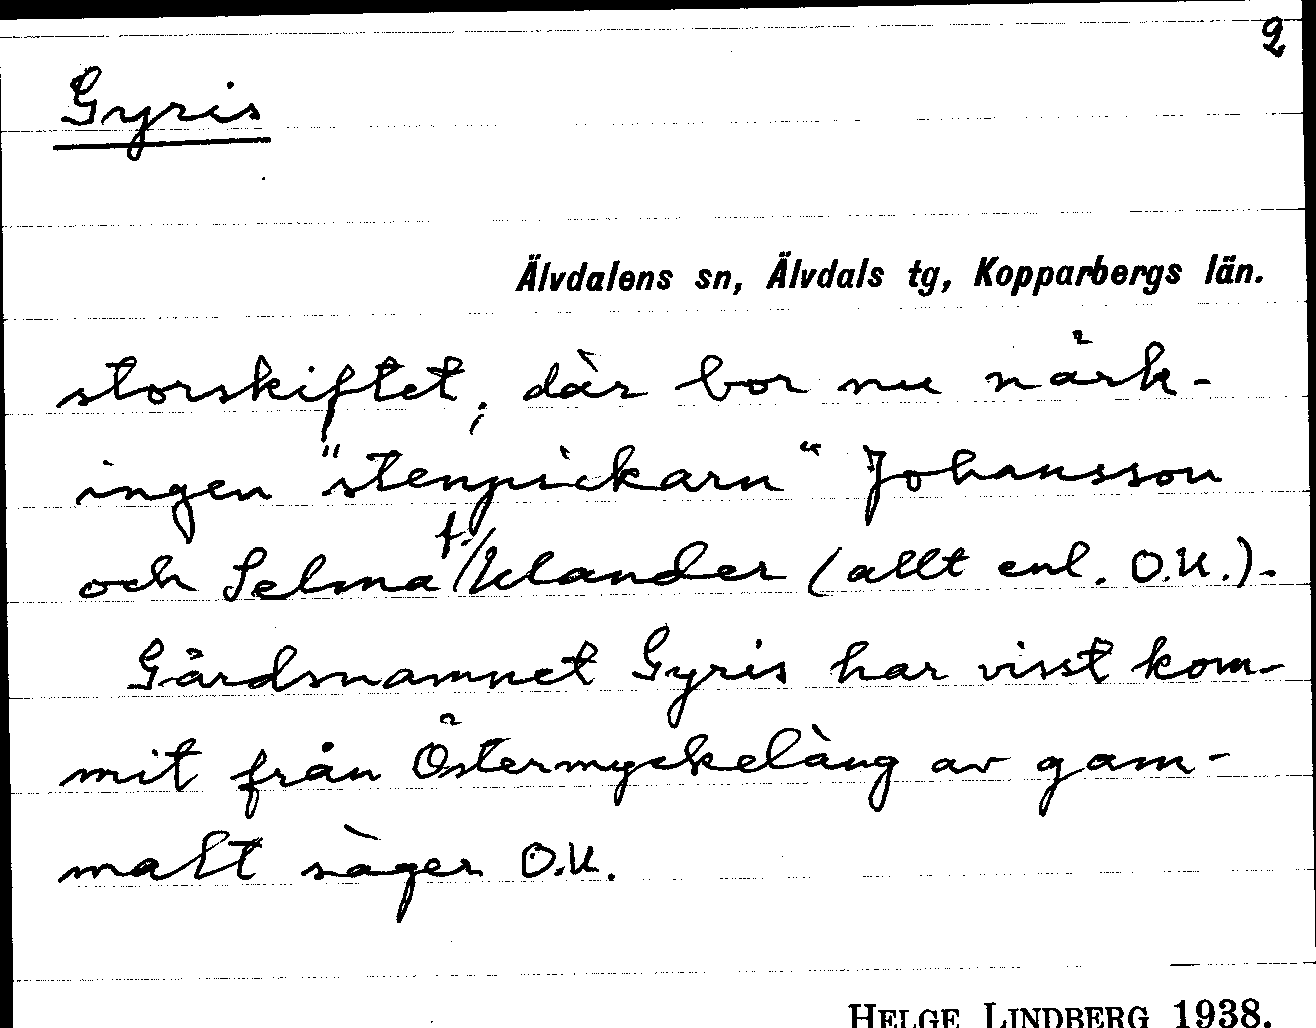 2
Gyris
Älvdalens sn, Älvdals tg, Kopparbergs län.
storskiftet, där bor nu närk-
ingen "stenpickarn" Johansson
och Selma f./Uklander (allt enl. O.U.).
Gårdsnamnet Gyris har visst kom-
mit från Östermyckeläng av gam-
malt säger O.U.
HELGE LINDBERG 1938.